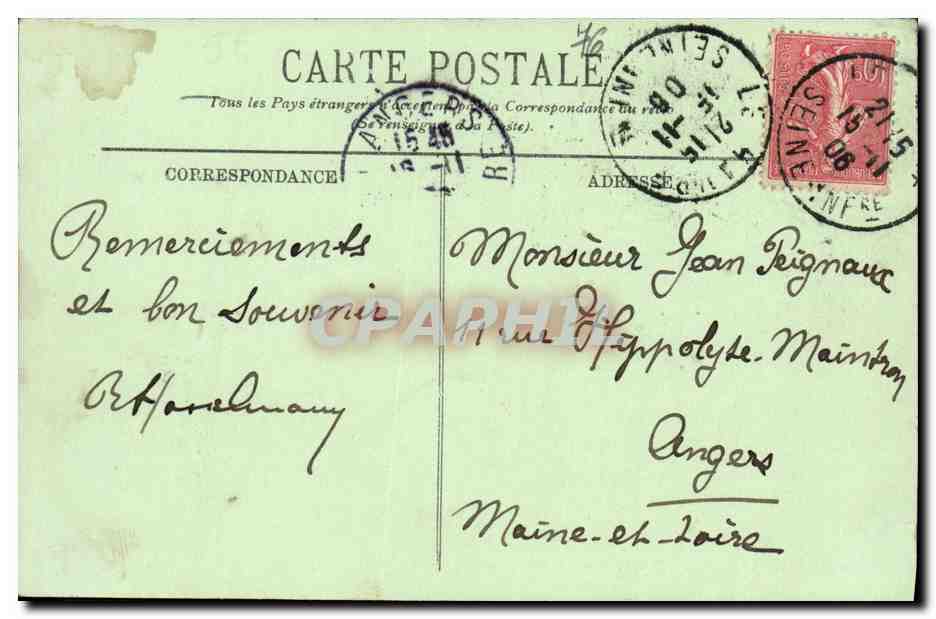 76
CARTE POSTALE
Tous les Pays étrangers n'acceptent pas la Correspondance au recto
(Se renseigner à la Poste).
ANGERS
15 45
16 -11
RE
SEINE INF
21 15
15 -11
06
LE
21 15
15 -11
06
SEINE INFRE
CORRESPONDANCE
ADRESSE
Remerciements
et bon souvenir
Monsieur Jean Peignaux
11 rue Hyppolyte-Maindron
Angers
Maine-et-Loire
CPAPHIL